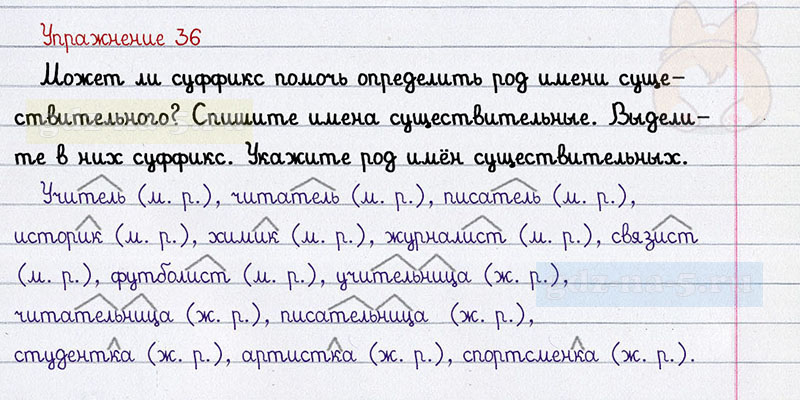 Упражнение 36
Может ли суффикс помочь определить род имени суще-
ствительного? Спишите имена существительные. Выдели-
те в них суффикс. Укажите род имён существительных.
Учитель (м. р.), читатель (м. р.), писатель (м. р.),
историк (м. р.), химик (м. р.), журналист (м. р.), связист
(м. р.), футболист (м. р.), учительница (ж. р.),
читательница (ж. р.), писательница (ж. р.),
студентка (ж. р.), артистка (ж. р.), спортсменка (ж. р.).